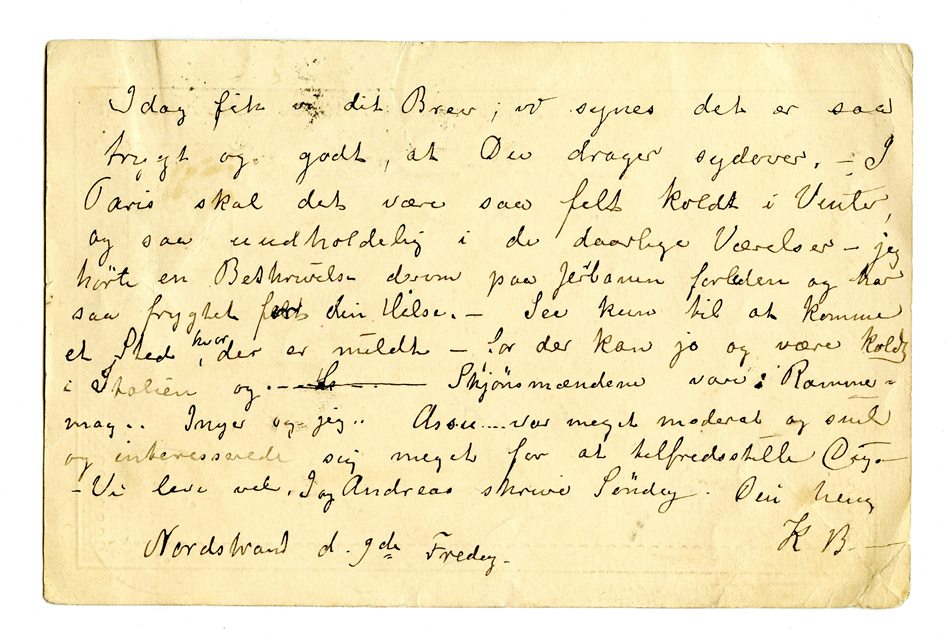 Idag fik vi dit Brev; vi synes det er saa
trygt og godt, at Du drager sydover. – I
Paris skal det være saa fælt koldt i Vinter,
og saa uudholdelig i de daarlige Værelser – jeg
hørte en Beskrivelse derom paa Jerbanen forleden og har
saa frygtet for din Helse. – See kun til at komme
et Sted hvor, der er mildt – for der kan jo og være koldt
i Italien og. – Skjønsmændene var i Ramme-
mag.. Inger og jeg.. var meget moderat og snil
og interesserede sig meget for at tilfredsstille Dig. –
– Vi leve vel. I og Andreas skrive Søndag. Din heng
Nordstrand d. 9de Fredag. K B. –